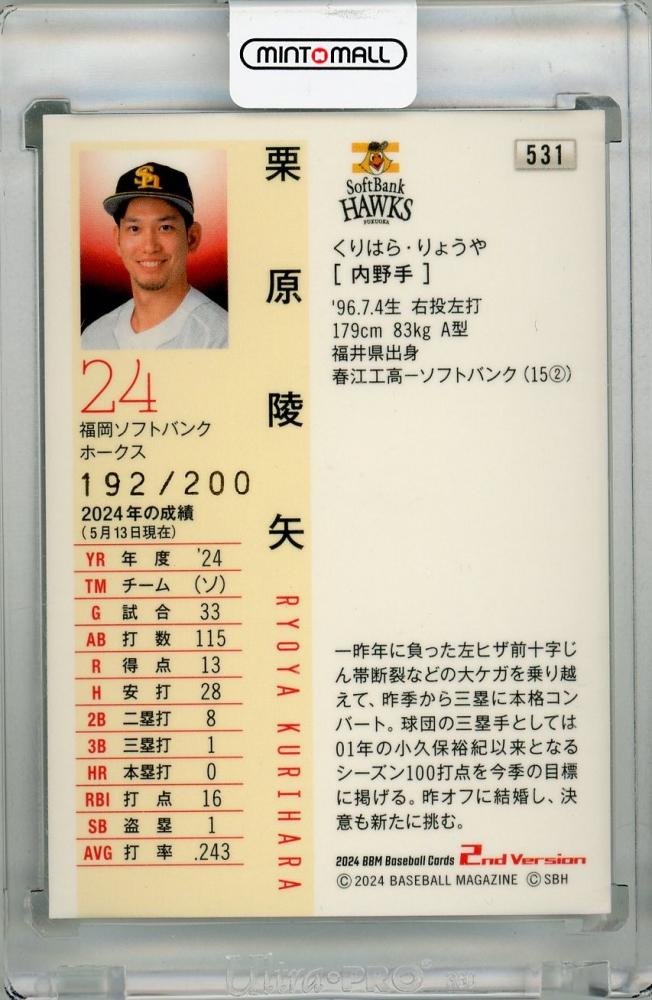 MINT MALL
栗原陵矢
RYOYA KURIHARA
24
福岡ソフトバンク
ホークス
192/200
2024年の成績
(5月13日現在)
YR 年度 '24
TM チーム (ソ)
G 試合 33
AB 打数 115
R 得点 13
H 安打 28
2B 二塁打 8
3B 三塁打 1
HR 本塁打 0
RBI 打点 16
SB 盗塁 1
AVG 打率 .243
SoftBank
HAWKS
FUKUOKA
531
くりはら・りょうや
[内野手]
'96.7.4生 右投左打
179cm 83kg A型
福井県出身
春江工高ーソフトバンク(15②)
一昨年に負った左ヒザ前十字じ
ん帯断裂などの大ケガを乗り越
えて、昨季から三塁に本格コン
バート。球団の三塁手としては
01年の小久保裕紀以来となる
シーズン100打点を今季の目標
に掲げる。昨オフに結婚し、決
意も新たに挑む。
2024 BBM Baseball Cards 2nd Version
©2024 BASEBALL MAGAZINE ©SBH
Ultra·PRO